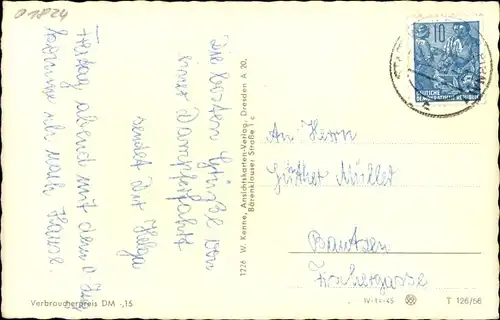 Die besten Grüße von
einer Dampferfahrt
sendet Dir Helga
Freitag abend mit dem
komme ich nach Hause.
1226 W. Kenne, Ansichtskarten-Verlag, Dresden A 20,
Bärenklauser Straße 1c
10
DEUTSCHE
DEMOKRATISCHE REPUBLIK
An Herrn
Günther Müller
Bautzen
Fischergasse
Verbraucherpreis DM -,15
T 126/56